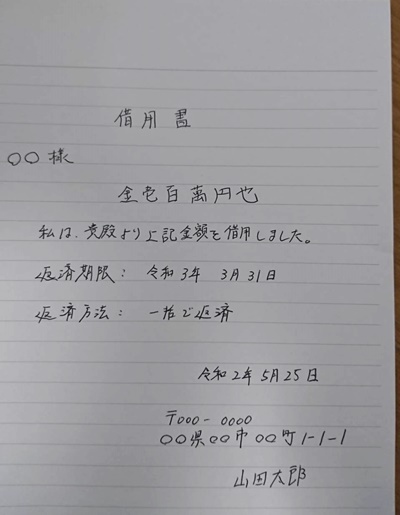 借用書
〇〇様
金壱百萬円也
私は、貴殿より上記金額を借用しました。
返済期限： 令和3年 3月31日
返済方法： 一括で返済
令和2年5月25日
〒000-0000
〇〇県〇〇市〇〇町1-1-1
山田太郎